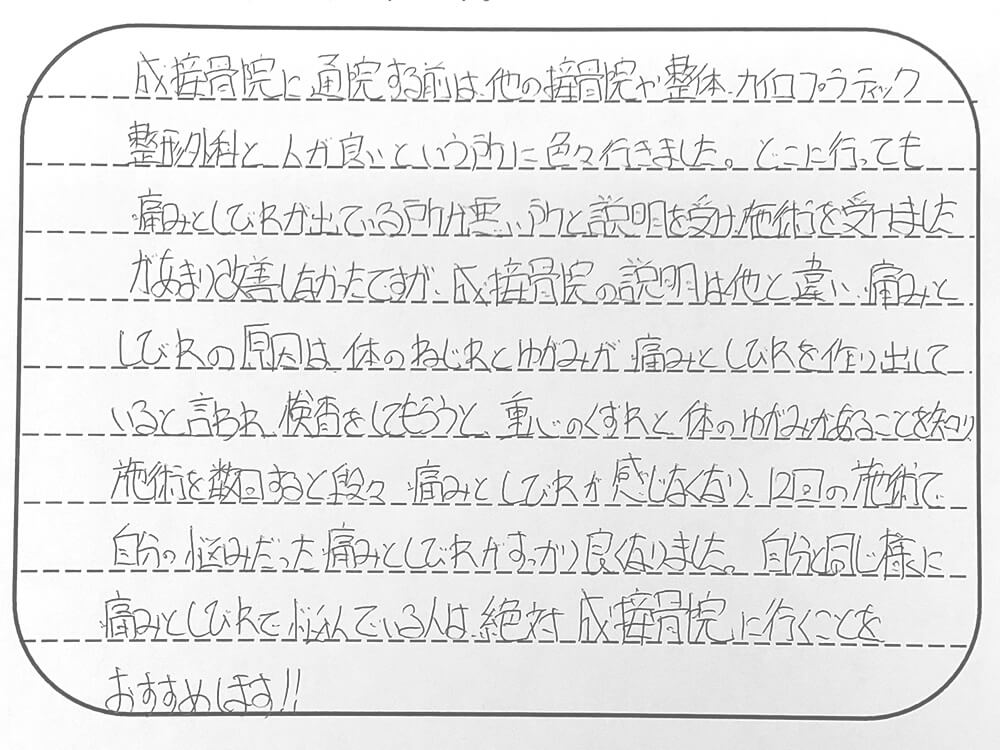 成接骨院に通院する前は他の接骨院や整体、カイロプラティック
整形外科と人が良いという所に色々行きました。どこに行っても
痛みとしびれが出ている所が悪い所と説明を受け施術を受けました
があまり改善しなかったですが、成接骨院の説明は他と違い、痛みと
しびれの原因は体のねじれとゆがみが痛みとしびれを作り出して
いると言われ、検査をしてもらうと、重心のくずれと体のゆがみがあることを知り
施術を数回すると段々痛みとしびれが感じなくなり、12回の施術で
自分の悩みだった痛みとしびれがすっかり良くなりました。自分と同じ様に
痛みとしびれで悩んでいる人は絶対成接骨院に行くことを
おすすめします!!